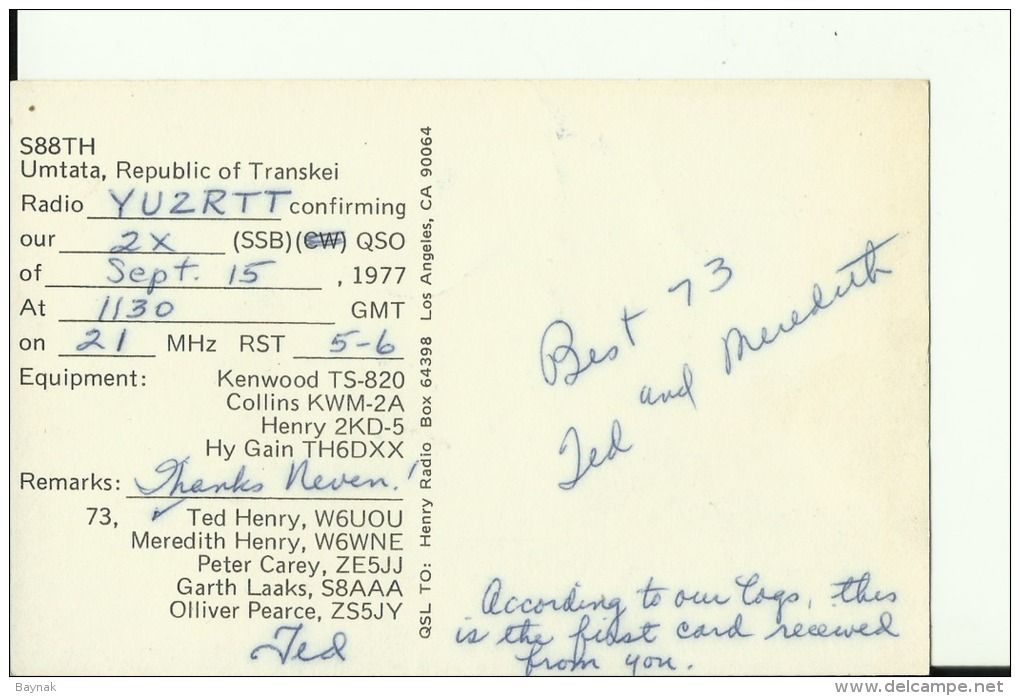 S88TH
Umtata, Republic of Transkei
Radio YU2RTT confirming
our 2X (SSB) (CW) QSO
of Sept. 15, 1977
At 1130 GMT
on 21 MHz RST 5-6
Equipment: Kenwood TS-820
Collins KWM-2A
Henry 2KD-5
Hy Gain TH6DXX
Remarks: Thanks Neven!
73, ✓ Ted Henry, W6UOU
Meredith Henry, W6WNE
Peter Carey, ZE5JJ
Garth Laaks, S8AAA
Olliver Pearce, ZS5JY
Ted
QSL TO: Henry Radio Box 64398 Los Angeles, CA 90064
Best 73
Ted and Meredith
According to our logs, this
is the first card received
from you.
Baynak
www.delcampe.net